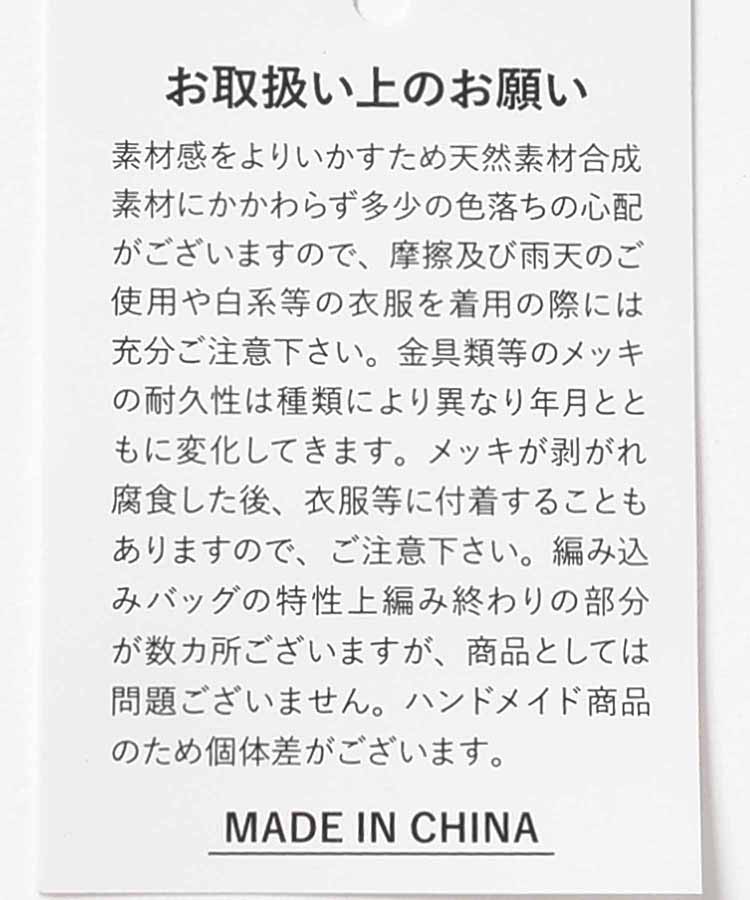 お取扱い上のお願い
素材感をよりいかすため天然素材合成
素材にかかわらず多少の色落ちの心配
がございますので、摩擦及び雨天のご
使用や白系等の衣服を着用の際には
充分ご注意下さい。金具類等のメッキ
の耐久性は種類により異なり年月とと
もに変化してきます。メッキが剥がれ
腐食した後、衣服等に付着することも
ありますので、ご注意下さい。編み込
みバッグの特性上編み終わりの部分
が数カ所ございますが、商品としては
問題ございません。ハンドメイド商品
のため個体差がございます。
MADE IN CHINA